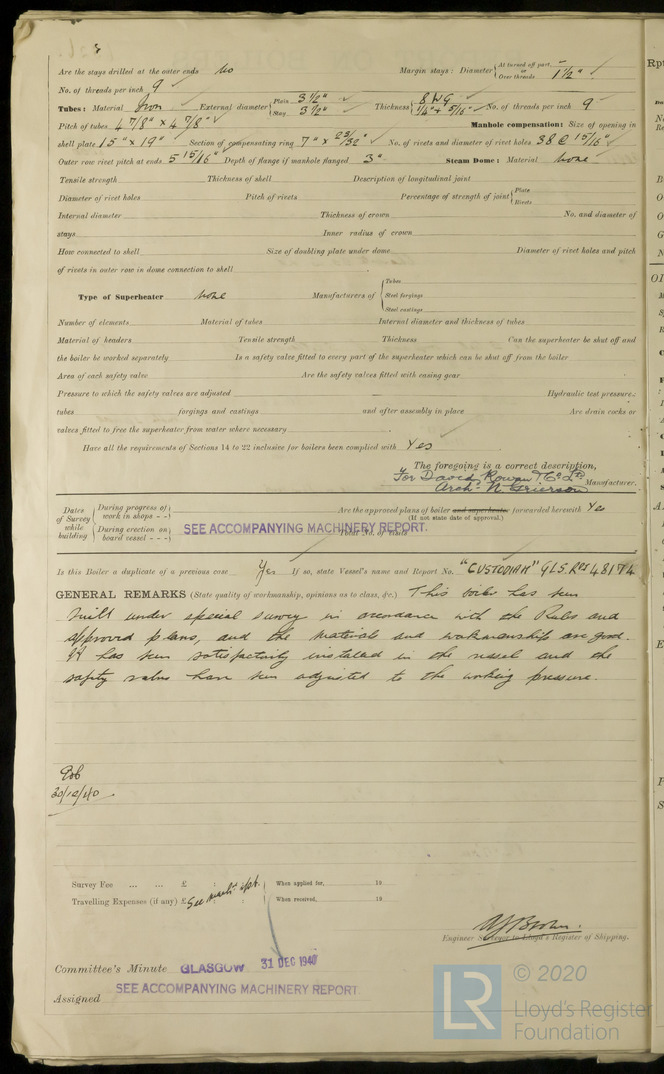 Are the stays drilled at the outer ends No Margin stays: Diameter { At turned off part, — or Over threads 1 1/2"
No. of threads per inch 9
Tubes: Material Iron External diameter { Plain 3 1/2" Stay 3 1/2" Thickness { 8 WG 1/4" + 5/16" No. of threads per inch 9
Pitch of tubes 4 7/8" x 4 7/8" Manhole compensation: Size of opening in
shell plate 15" x 19" Section of compensating ring 7" x 23/32" No. of rivets and diameter of rivet holes 38 @ 15/16"
Outer row rivet pitch at ends 5 15/16" Depth of flange if manhole flanged 3" Steam Dome: Material None
Tensile strength Thickness of shell Description of longitudinal joint
Diameter of rivet holes Pitch of rivets Percentage of strength of joint { Plate Rivets
Internal diameter Thickness of crown No. and diameter of
stays Inner radius of crown
How connected to shell Size of doubling plate under dome Diameter of rivet holes and pitch
of rivets in outer row in dome connection to shell
Type of Superheater None Manufacturers of { Tubes Steel forgings Steel castings
Number of elements Material of tubes Internal diameter and thickness of tubes
Material of headers Tensile strength Thickness Can the superheater be shut off and
the boiler be worked separately Is a safety valve fitted to every part of the superheater which can be shut off from the boiler
Area of each safety valve Are the safety valves fitted with easing gear
Pressure to which the safety valves are adjusted Hydraulic test pressure:
tubes forgings and castings and after assembly in place Are drain cocks or
valves fitted to free the superheater from water where necessary
Have all the requirements of Sections 14 to 22 inclusive for boilers been complied with Yes
The foregoing is a correct description,
For David Rowan & Co Ld
Arch. N Grierson Manufacturer.
Dates of Survey while building { During progress of work in shops - - } Are the approved plans of boiler and superheater forwarded herewith Yes
(If not state date of approval.)
{ During erection on board vessel - - - } SEE ACCOMPANYING MACHINERY REPORT. Total No. of visits
Is this Boiler a duplicate of a previous case Yes If so, state Vessel's name and Report No. "CUSTODIAN" GLS. Rpt 48174
GENERAL REMARKS (State quality of workmanship, opinions as to class, &c.) This boiler has been
built under special survey in accordance with the Rules and
approved plans, and the materials and workmanship are good.
It has been satisfactorily installed in the vessel and the
safety valves have been adjusted to the working pressure.
30/12/40
Survey Fee ... ... £ : : When applied for, 19
Travelling Expenses (if any) £ See mach. rpt. When received, 19
Engineer Surveyor to Lloyd's Register of Shipping.
Committee's Minute GLASGOW 31 DEC 1940
Assigned SEE ACCOMPANYING MACHINERY REPORT.
© 2020
LR Lloyd's Register
Foundation